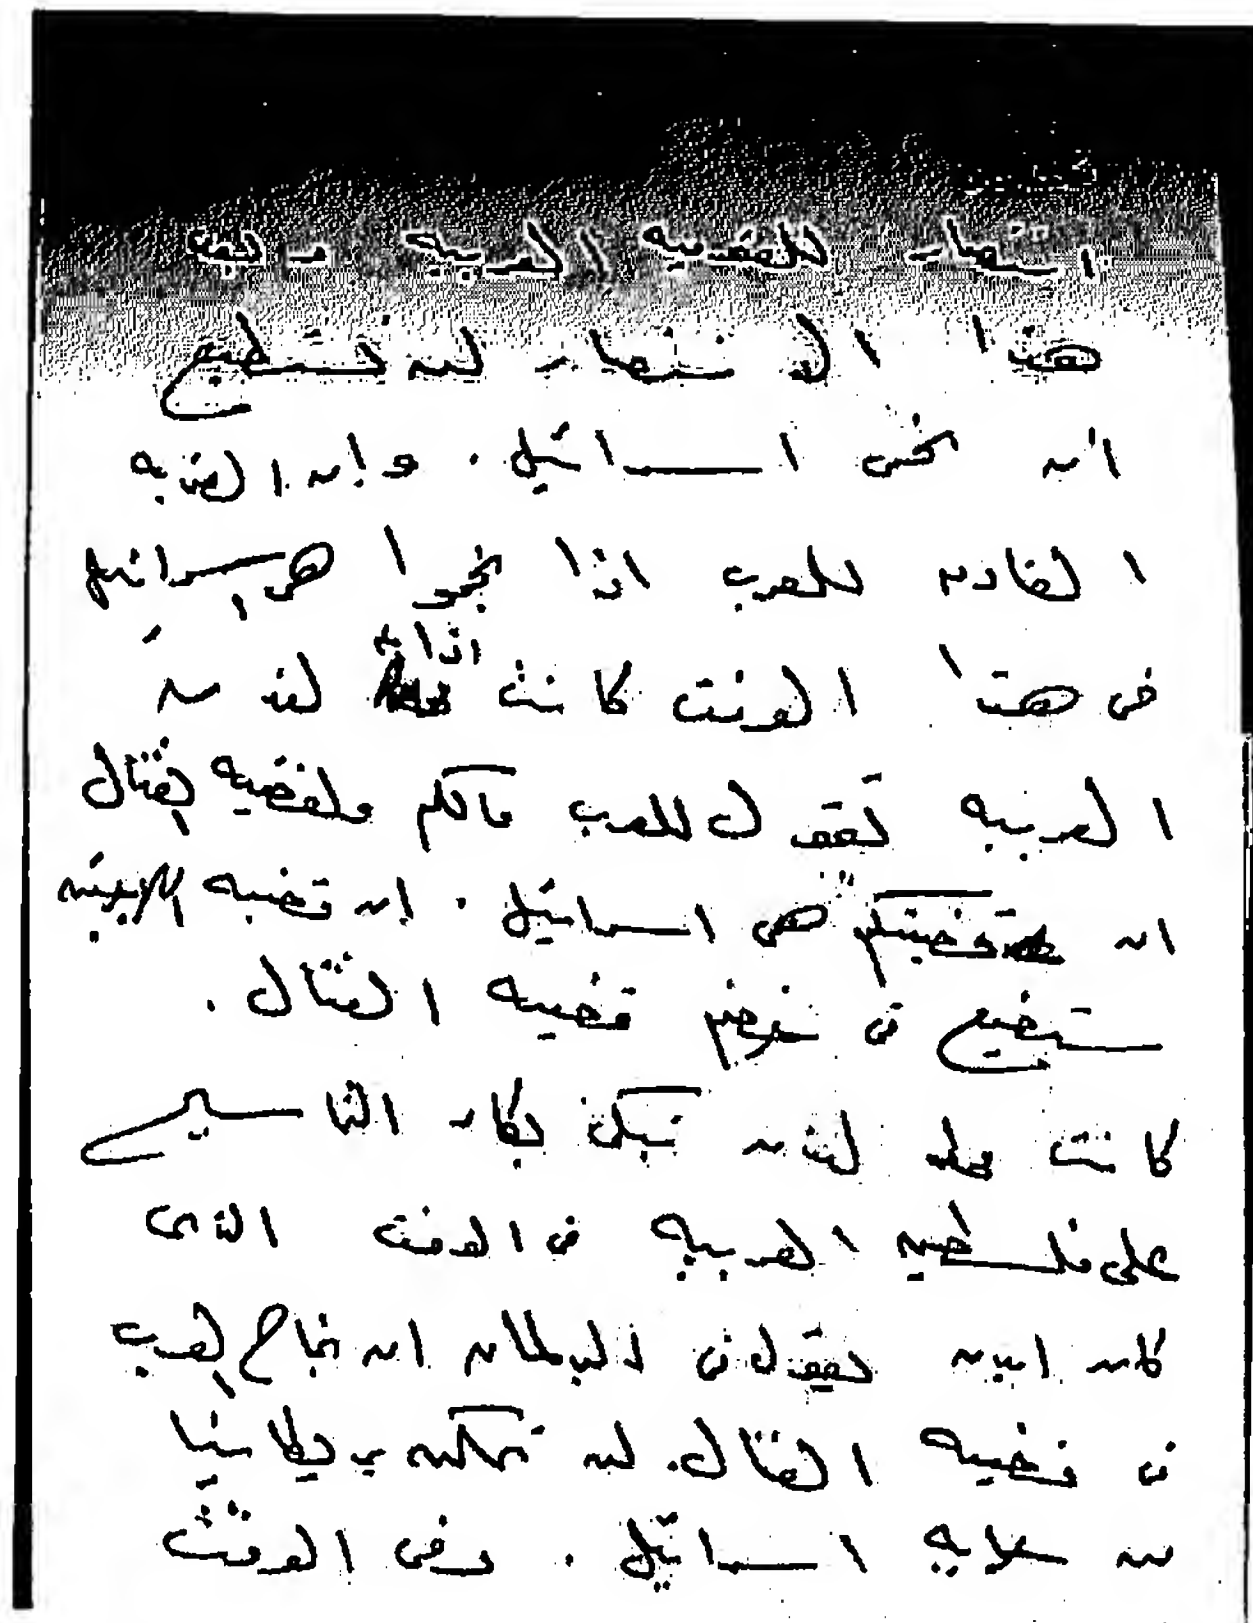 انتصار للقضيه العربيه - وبعد
هذا الانتصار لن نستطيع
ان نحمى اسرائيل . وإن الضربه
القادمه للعرب اذا نجحوا هى إسرائيل
فى هذا الوقت كانت اذاعة لندن
العربيه تقول للعرب مالكم ولقضيه القتال
ان قضيتكم هى اسرائيل . إن قضيه فلسطين
ستضيع فى خضم قضيه القنال .
كانت محطه لندن تبكى بكاء التماسيح
على فلسطين العربيه فى الوقت الذى
كان ايدن يقول فى البرلمان ان نجاح العرب
فى قضيه القنال لن تمكن بريطانيا
من حمايه اسرائيل . وفى الوقت